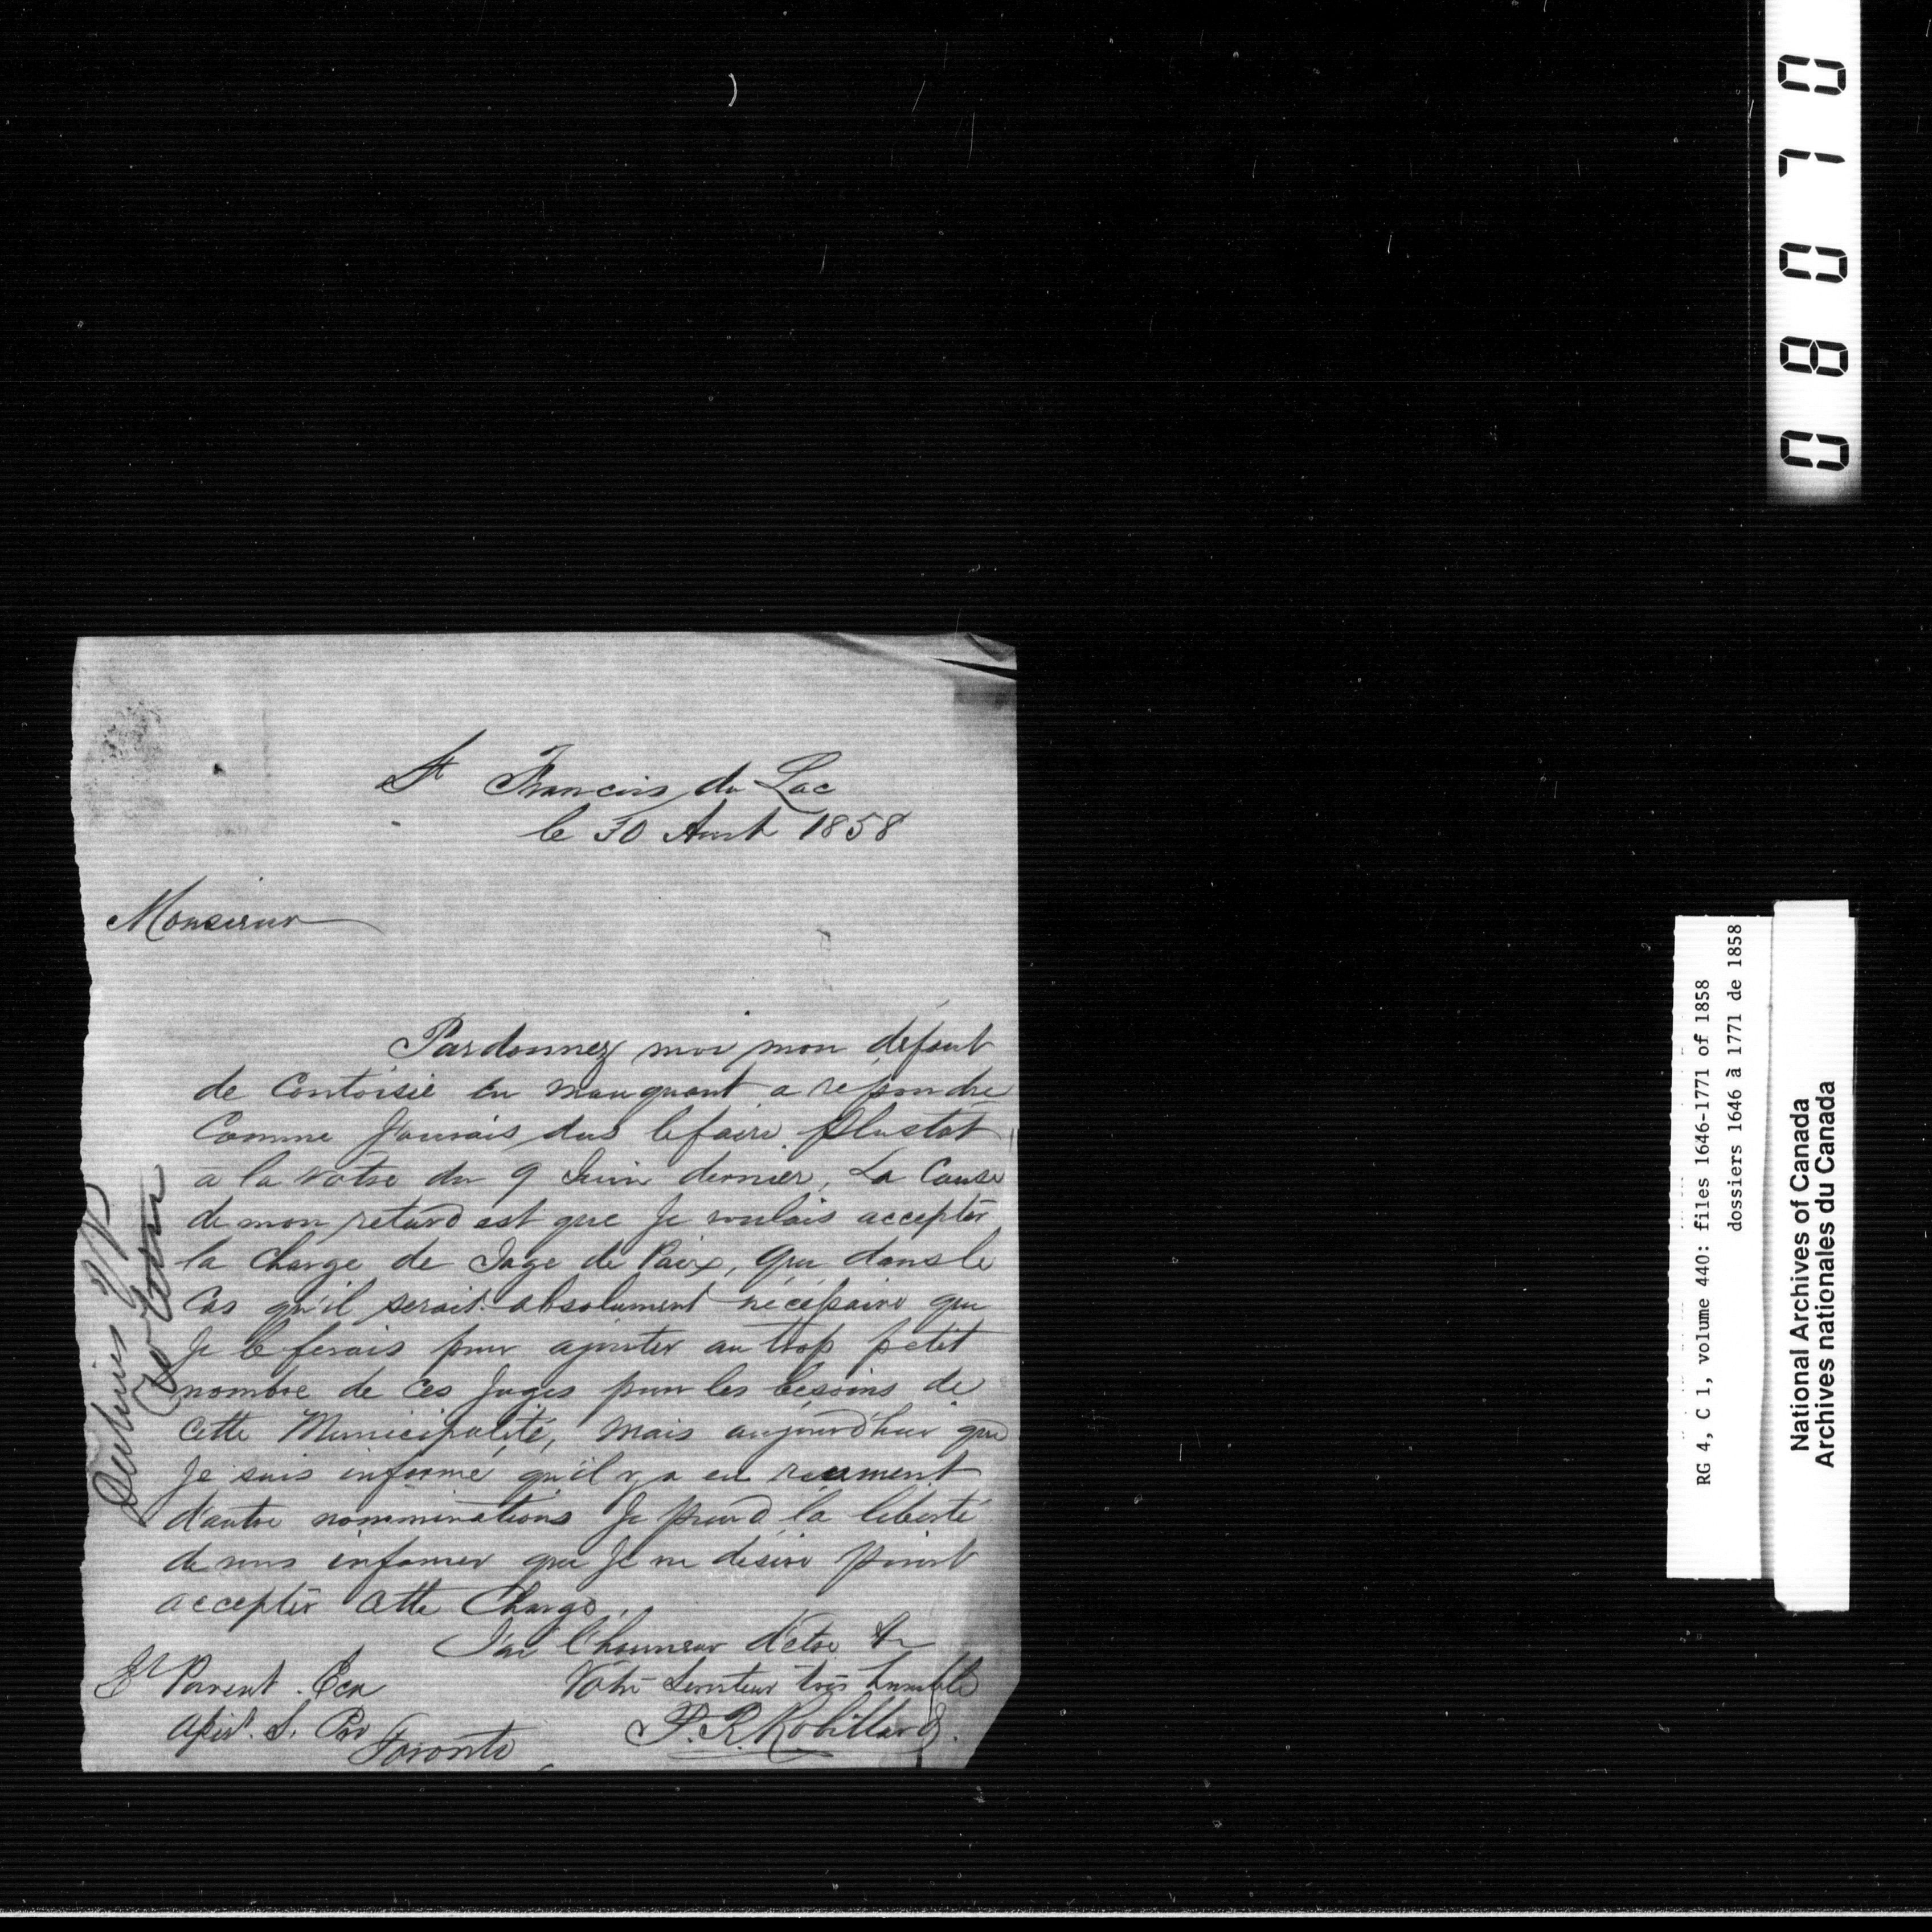 St Francois du Lac
le 30 Aout 1858
Monsieur
Pardonnez moi mon défaut
de Contoisie en manquant a repondre
Comme J'aurais dus le faire plustot
a la Votre du 9 Juin dernier, La Cause
de mon retard est que Je voulais accepter
la Charge de Juge de Paix, que dans le
Cas qu'il serait absolument nécéssaire que
Je le ferais pour ajouter au trop petit
nombre de ces Juges pour les besoins de
cette Municipalité, mais aujourd'hui que
Je suis informé qu'il y a eu recement
d'autre nomminations Je prend la liberté
de vous informer que Je ne desire point
accepter cette Charge.
J'ai l'honneur d'etre &c
Votre Serviteur très humble
P. R. Robillard.
Et Parent. Ecr
Assist. S. Pro
Toronto
Declines JP
0 8 0 7 0
RG 4, C 1, volume 440: files 1646-1771 of 1858
dossiers 1646 à 1771 de 1858
National Archives of Canada
Archives nationales du Canada